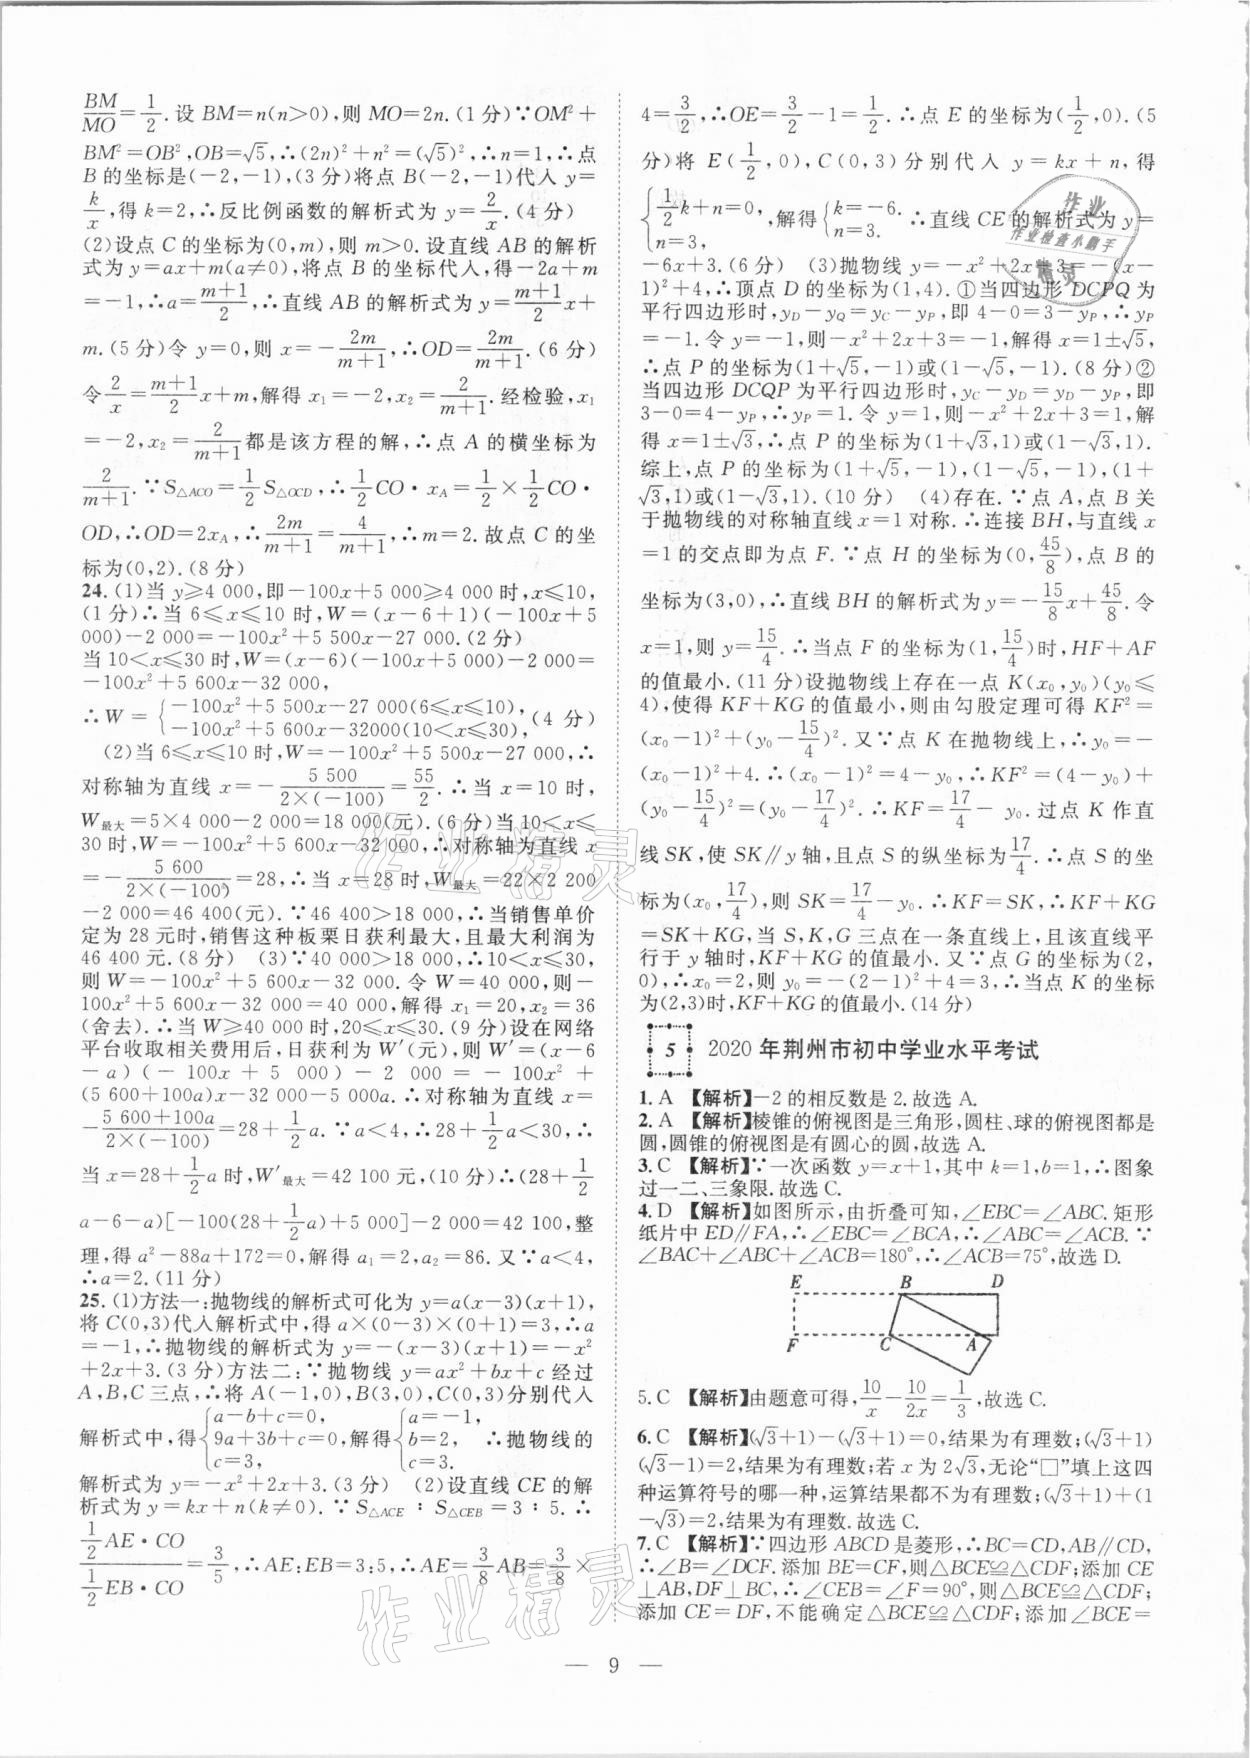 BM/MO=1/2.设 BM=n(n>0),则 MO=2n.(1 分)∵OM²+
BM²=OB²,OB=√5,∴(2n)²+n²=(√5)²,∴n=1,∴点
B 的坐标是(-2,-1),(3 分)将点 B(-2,-1)代入 y=
k/x,得 k=2,∴反比例函数的解析式为 y=2/x.(4 分)
(2)设点 C 的坐标为(0,m),则 m>0.设直线 AB 的解析
式为 y=ax+m(a≠0),将点 B 的坐标代入,得-2a+m
=-1,∴a=(m+1)/2,∴直线 AB 的解析式为 y=(m+1)/2 x+
m.(5 分)令 y=0,则 x=-2m/(m+1),∴OD=2m/(m+1).(6 分)
令 2/x=(m+1)/2 x+m,解得 x₁=-2,x₂=2/(m+1).经检验,x₁
=-2,x₂=2/(m+1)都是该方程的解,∴点 A 的横坐标为
2/(m+1).∵S△ACO=1/2 S△OCD,∴1/2 CO·x_A=1/2×1/2 CO·
OD,∴OD=2x_A,∴2m/(m+1)=4/(m+1),∴m=2.故点 C 的坐
标为(0,2).(8 分)
24.(1)当 y≥4 000,即-100x+5 000≥4 000 时,x≤10,
(1 分)∴当 6≤x≤10 时,W=(x-6+1)(-100x+5
000)-2 000=-100x²+5 500x-27 000.(2 分)
当 10<x≤30 时,W=(x-6)(-100x+5 000)-2 000=
-100x²+5 600x-32 000,
∴W={-100x²+5 500x-27 000(6≤x≤10),
-100x²+5 600x-32000(10<x≤30), (4 分)
(2)当 6≤x≤10 时,W=-100x²+5 500x-27 000,∴
对称轴为直线 x=-5 500/(2×(-100))=55/2.∴当 x=10 时,
W最大=5×4 000-2 000=18 000(元).(6 分)当 10<x≤
30 时,W=-100x²+5 600x-32 000,∴对称轴为直线 x
=-5 600/(2×(-100))=28,∴当 x=28 时,W最大=22×2 200
-2 000=46 400(元).∵46 400>18 000,∴当销售单价
定为 28 元时,销售这种板栗日获利最大,且最大利润为
46 400 元.(8 分) (3)∵40 000>18 000,∴10<x≤30,
则 W=-100x²+5 600x-32 000.令 W=40 000,则-
100x²+5 600x-32 000=40 000,解得 x₁=20,x₂=36
(舍去).∴当 W≥40 000 时,20≤x≤30.(9 分)设在网络
平台收取相关费用后,日获利为 W′(元),则 W′=(x-6
-a)(-100x+5 000)-2 000=-100x²+
(5 600+100a)x-32 000-5 000a.∴对称轴为直线 x=
-(5 600+100a)/(2×(-100))=28+1/2 a.∵a<4,∴28+1/2 a<30,∴
当 x=28+1/2 a 时,W′最大=42 100 元,(10 分)∴(28+1/2
a-6-a)[-100(28+1/2 a)+5 000]-2 000=42 100,整
理,得 a²-88a+172=0,解得 a₁=2,a₂=86.又∵a<4,
∴a=2.(11 分)
25.(1)方法一:抛物线的解析式可化为 y=a(x-3)(x+1),
将 C(0,3)代入解析式中,得 a×(0-3)×(0+1)=3,∴a
=-1,∴抛物线的解析式为 y=-(x-3)(x+1)=-x²+
2x+3.(3 分)方法二:∵抛物线 y=ax²+bx+c 经过
A,B,C 三点,∴将 A(-1,0),B(3,0),C(0,3)分别代入
解析式中,得{a-b+c=0, 9a+3b+c=0, c=3, 解得{a=-1, b=2, c=3. ∴抛物线的
解析式为 y=-x²+2x+3.(3 分) (2)设直线 CE 的解
析式为 y=kx+n(k≠0).∵S△ACE∶S△CEB=3∶5.∴
(1/2 AE·CO)/(1/2 EB·CO)=3/5,∴AE:EB=3:5,∴AE=3/8 AB=3/8×
4=3/2,∴OE=3/2-1=1/2.∴点 E 的坐标为(1/2,0).(5
分)将 E(1/2,0),C(0,3)分别代入 y=kx+n,得
{1/2 k+n=0, n=3, 解得{k=-6. n=3. ∴直线 CE 的解析式为 y=
-6x+3.(6 分) (3)抛物线 y=-x²+2x+3=-(x-
1)²+4,∴顶点 D 的坐标为(1,4).①当四边形 DCPQ 为
平行四边形时,y_D-y_Q=y_C-y_P,即 4-0=3-y_P,∴y_P
=-1.令 y=-1,则-x²+2x+3=-1,解得 x=1±√5,
∴点 P 的坐标为(1+√5,-1)或(1-√5,-1).(8 分)②
当四边形 DCQP 为平行四边形时,y_C-y_D=y_D-y_P,即
3-0=4-y_P,∴y_P=1.令 y=1,则-x²+2x+3=1,解
得 x=1±√3,∴点 P 的坐标为(1+√3,1)或(1-√3,1).
综上,点 P 的坐标为(1+√5,-1),(1-√5,-1),(1+
√3,1)或(1-√3,1).(10 分) (4)存在.∵点 A,点 B 关
于抛物线的对称轴直线 x=1 对称.∴连接 BH,与直线 x
=1 的交点即为点 F.∵点 H 的坐标为(0,45/8),点 B 的
坐标为(3,0),∴直线 BH 的解析式为 y=-15/8 x+45/8.令
x=1,则 y=15/4.∴当点 F 的坐标为(1,15/4)时,HF+AF
的值最小.(11 分)设抛物线上存在一点 K(x₀,y₀)(y₀≤
4),使得 KF+KG 的值最小,则由勾股定理可得 KF²=
(x₀-1)²+(y₀-15/4)².又∵点 K 在抛物线上,∴y₀=-
(x₀-1)²+4.∴(x₀-1)²=4-y₀,∴KF²=(4-y₀)+
(y₀-15/4)²=(y₀-17/4)².∴KF=17/4-y₀.过点 K 作直
线 SK,使 SK∥y 轴,且点 S 的纵坐标为17/4.∴点 S 的坐
标为(x₀,17/4),则 SK=17/4-y₀.∴KF=SK,∴KF+KG
=SK+KG,当 S,K,G 三点在一条直线上,且该直线平
行于 y 轴时,KF+KG 的值最小.又∵点 G 的坐标为(2,
0),∴x₀=2,则 y₀=-(2-1)²+4=3,∴当点 K 的坐标
为(2,3)时,KF+KG 的值最小.(14 分)
5 2020 年荆州市初中学业水平考试
1.A 【解析】-2 的相反数是 2.故选 A.
2.A 【解析】棱锥的俯视图是三角形,圆柱、球的俯视图都是
圆,圆锥的俯视图是有圆心的圆,故选 A.
3.C 【解析】∵一次函数 y=x+1,其中 k=1,b=1,∴图象
过一二、三象限.故选 C.
4.D 【解析】如图所示,由折叠可知,∠EBC=∠ABC.矩形
纸片中 ED∥FA,∴∠EBC=∠BCA,∴∠ABC=∠ACB.∵
∠BAC+∠ABC+∠ACB=180°,∴∠ACB=75°,故选 D.
E B D
F C A
5.C 【解析】由题意可得,10/x-10/2x=1/3,故选 C.
6.C 【解析】(√3+1)-(√3+1)=0,结果为有理数;(√3+1)
(√3-1)=2,结果为有理数;若 x 为 2√3,无论“□”填上这四
种运算符号的哪一种,运算结果都不为有理数;(√3+1)+(1
-√3)=2,结果为有理数.故选 C.
7.C 【解析】∵四边形 ABCD 是菱形,∴BC=CD,AB∥CD,
∴∠B=∠DCF.添加 BE=CF,则△BCE≌△CDF;添加 CE
⊥AB,DF⊥BC,∴∠CEB=∠F=90°,则△BCE≌△CDF;
添加 CE=DF,不能确定△BCE≌△CDF;添加∠BCE=
— 9 —
作业
作业检查小帮手
精灵
作业精灵
作业精灵